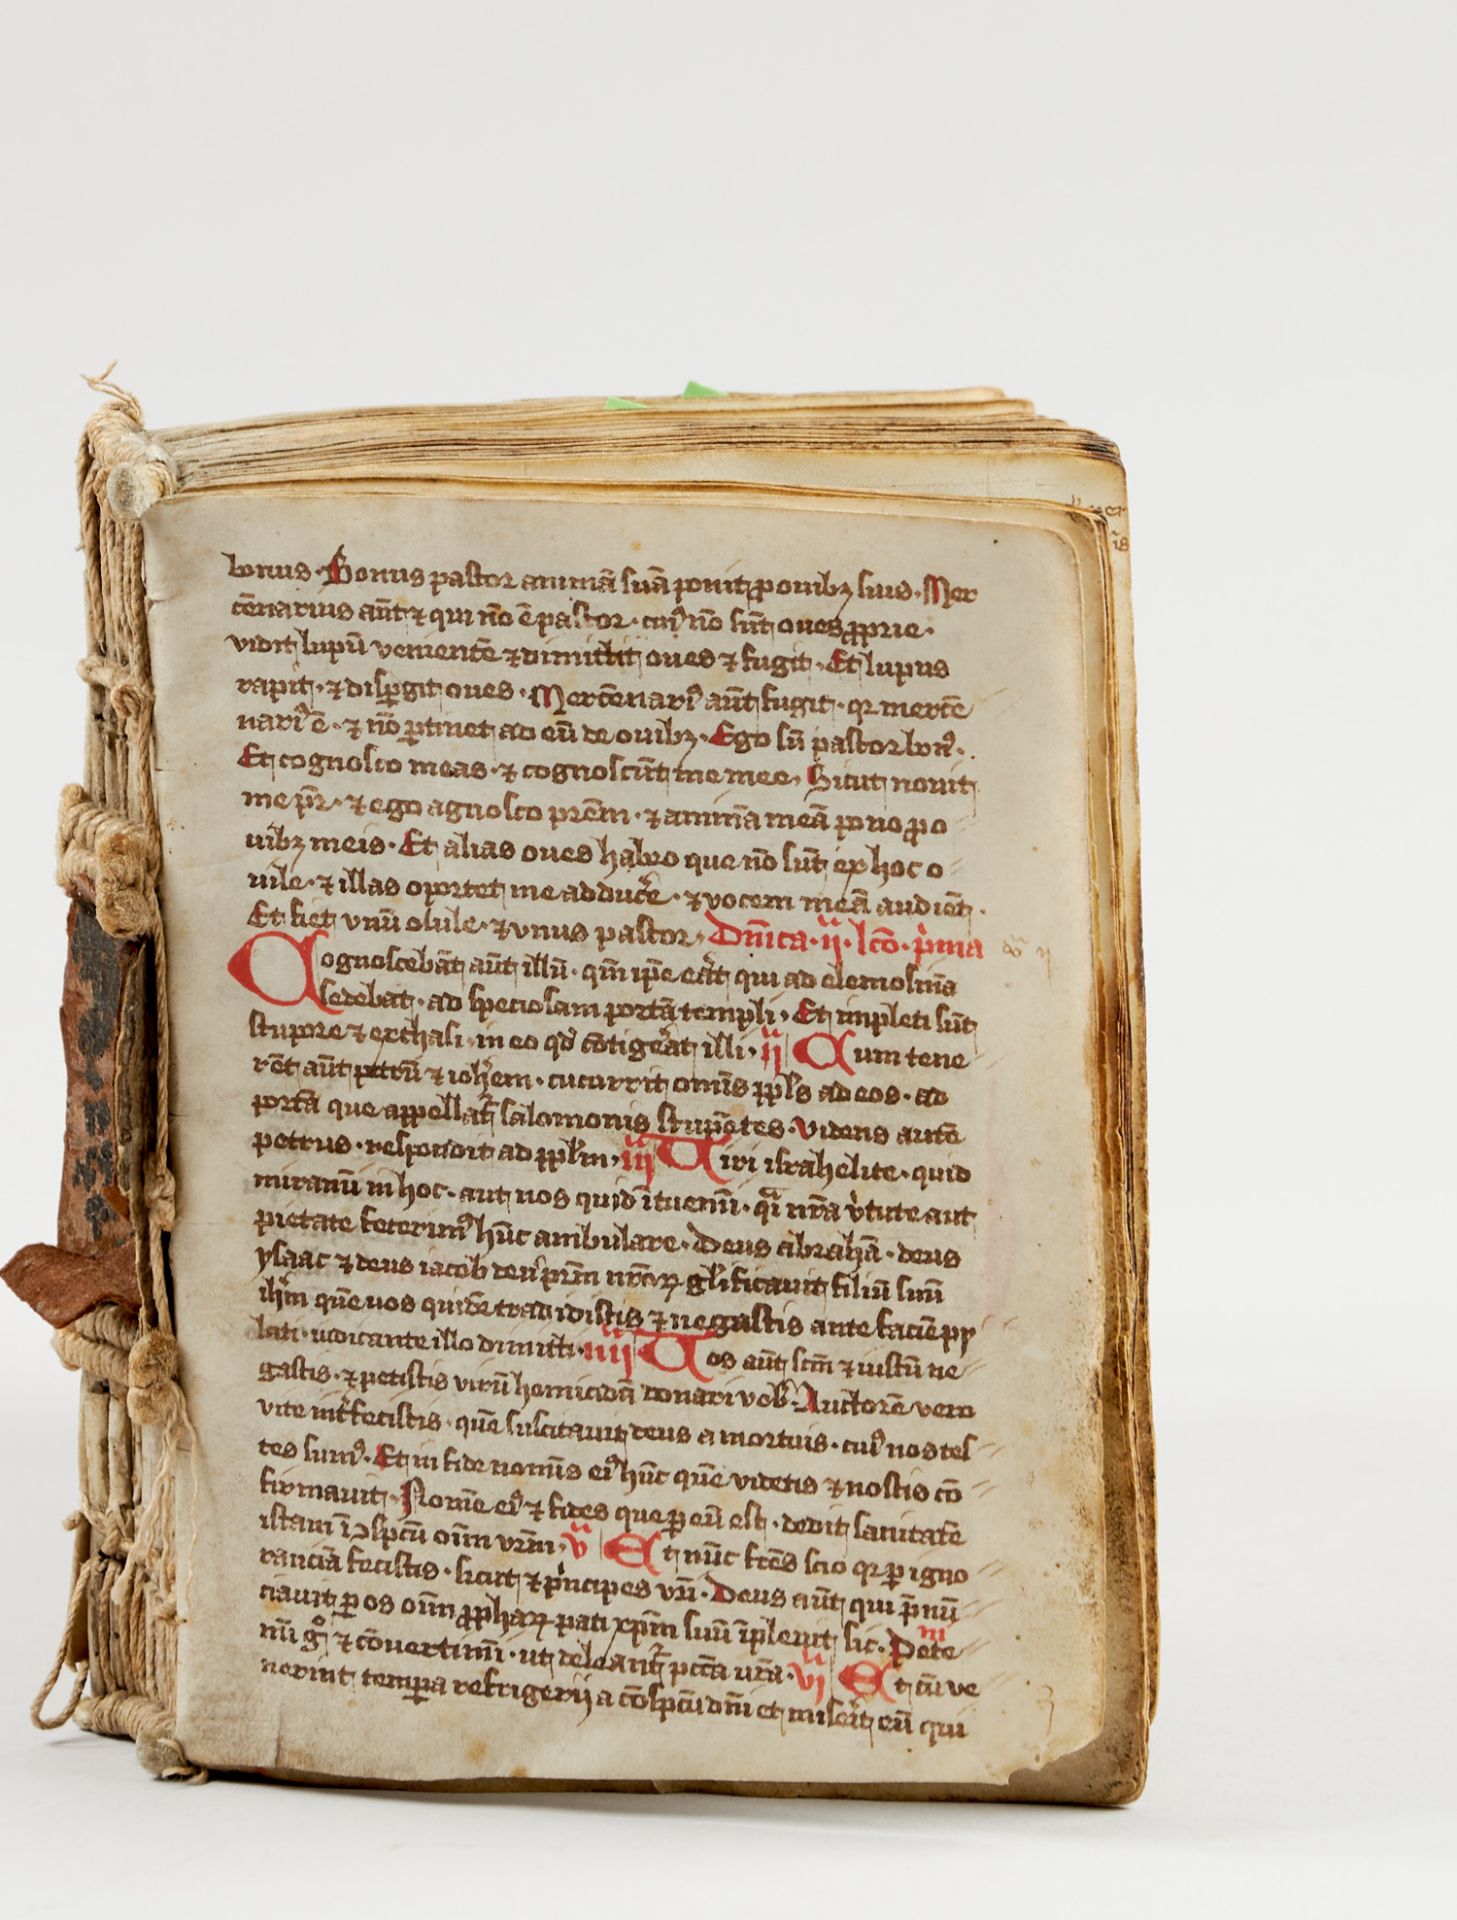 bonus · Bonus pastor animā suā ponit ꝓ ouibꝫ suis · Mer
cēnarius aūt ⁊ qui nō ē pastor · cuiꝰ nō sūt oues ꝓprie ·
vidit lupū venientē ⁊ dimittit oues ⁊ fugit · Et lupus
rapit · ⁊ dispgit oues · Mercēnariꝰ aūt fugit · qꝛ mercē
nariꝰ ē · ⁊ nō ꝑtinet ad eū de ouibꝫ · Ego sū pastor bonꝰ ·
Et cognosco meas · ⁊ cognoscūt me mee · Sicut nouit
me pr̄ · ⁊ ego agnosco prēm · ⁊ animā meā pono ꝓ o
uibꝫ meis · Et alias oues habeo que nō sūt ex hoc o
uile · ⁊ illas oportet me adducẽ · ⁊ vocem meā audiēt ·
Et fiet vnū ouile · ⁊ vnus pastor · Dn̄ica · ij · lc̄o · p̃ma
Cognoscebāt aūt illū · qm̄ ip̄e erãt qui ad elemosinā
sedebat · ad speciosam portā templi · Et impleti sūt
stupore ⁊ exthasi · in eo qd̛ cōtigeãt illi · ij Cum tene
rēt aūt petrū ⁊ ioh̄em · cucurrit omīs ppl̄s ad eos · ad
portā que appellat̃ salomonis stupētes · Videns autē
petrus · respondit ad ppl̄m · iij Viri israhelite · quid
miramī in hoc · aut nos quid ītuemī · qͣi nr̄a v̛tute aut
pietate fecerimꝰ hūc ambulare · Deus abrahā · deus
ysaac ⁊ deus iacob deꝰ prm̄ nr̄oꝝ gl̄ificauit filiū suū
ih̄m quē uos quidē tradidistis ⁊ negastis ante faciē py
lati · iudicante illo dimitti · iiij Vos aūt scm̄ ⁊ iustū ne
gastis · ⁊ petistis virū homicidā donari vob̛ · Auctorē vero
vite int̛fecistis · quē suscitauit deus a mortuis · cuiꝰ nos tes
tes sumꝰ · Et in fide nomīs eiꝰ hūc quē videtis ⁊ nostis cō
firmauit · Nomē eiꝰ ⁊ fides que ꝑ eū est · dedit sanitatē
istam ī ↄspcū oīm vrm̄ · v Et nūc fr̄es scio qꝛ ꝑ igno
ranciā fecistis · sicut ⁊ p̛ncipes vrī · Deus aūt qui p̄nū
ciauit ꝑ os oīm ꝓphaꝝ pati xp̄m suū īpleuit sic · Pēte
mī gͦ ⁊ cōuertimī · ut deleant̛ pcc̄a vr̄a · vj Et cū ve
nerint tempa refrigerij a cōspcū dn̄i et miserit eū qui